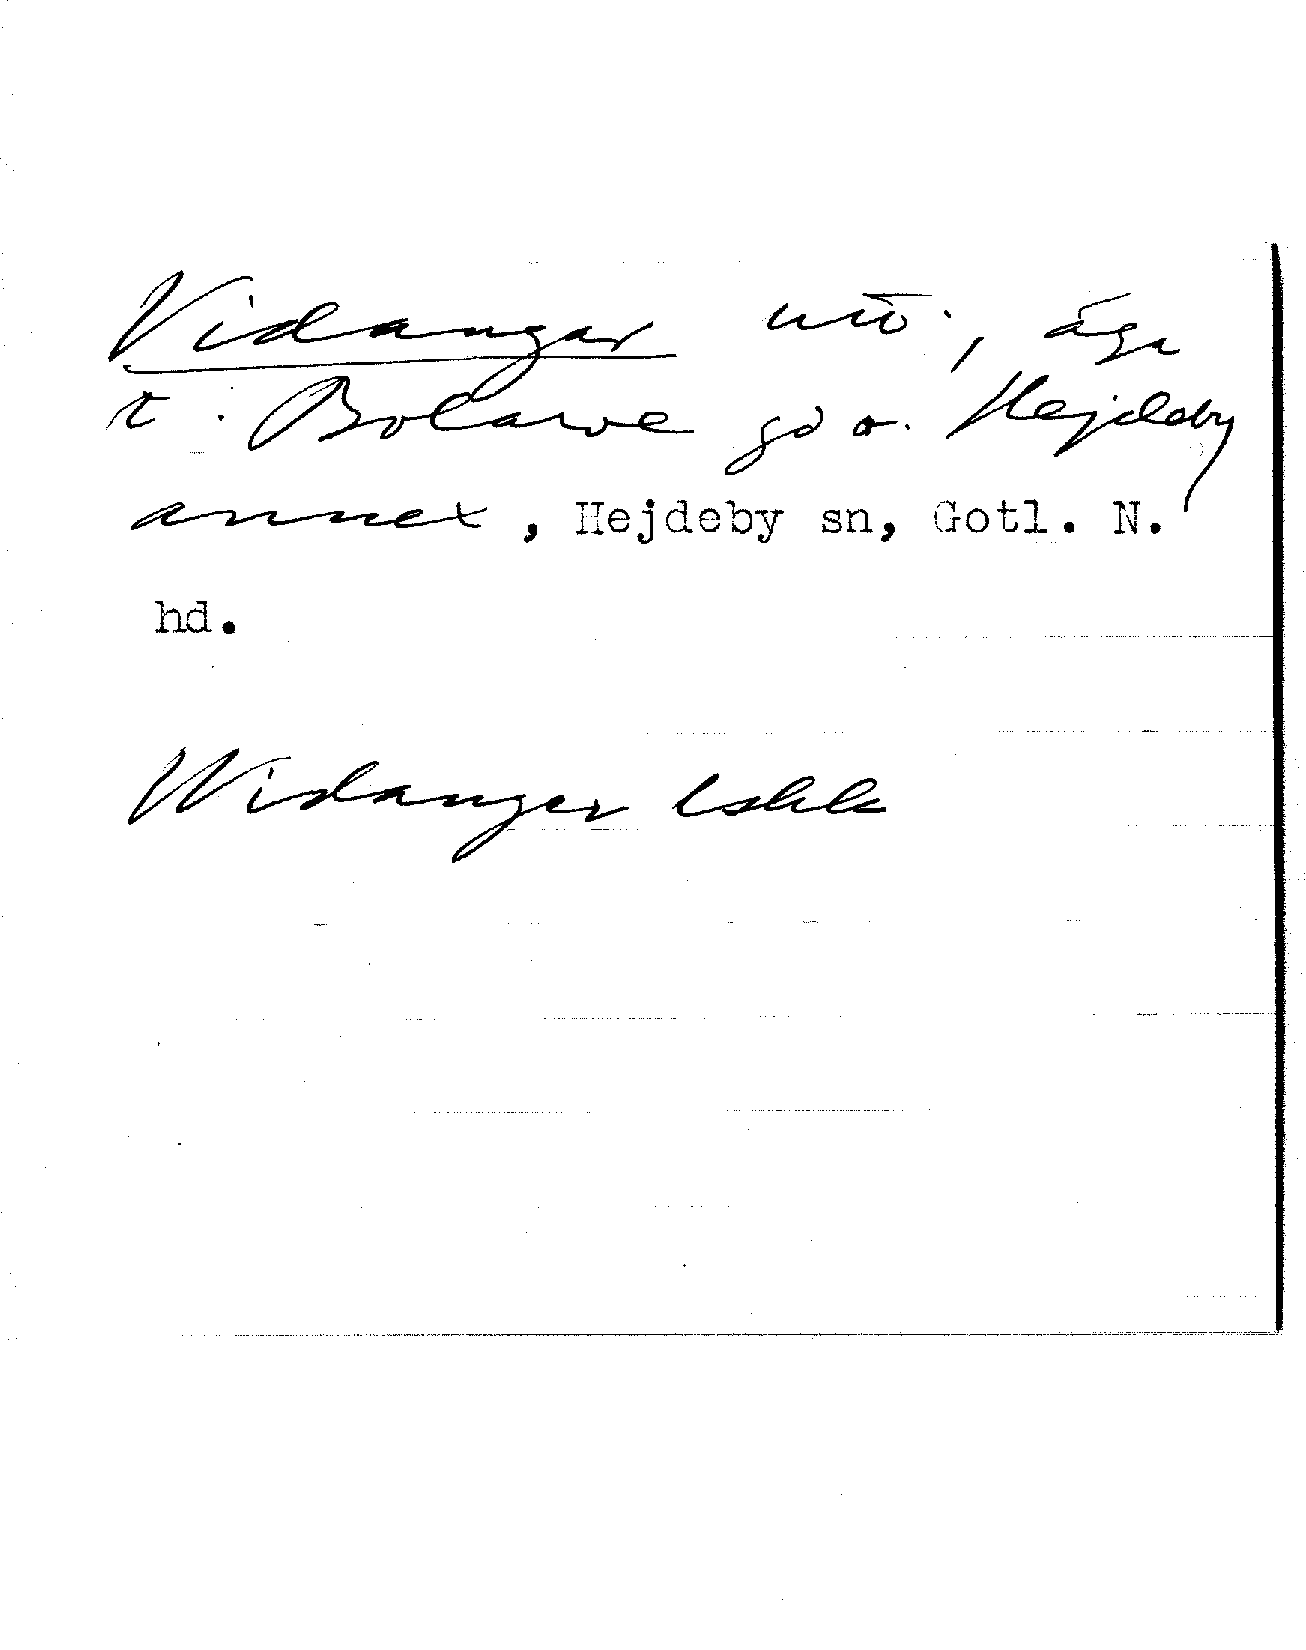 Vidangar utö., äga
t. Bolarve gd o. Hejdeby
annex, Hejdeby sn, Gotl. N.
hd.
Widanger Lskk